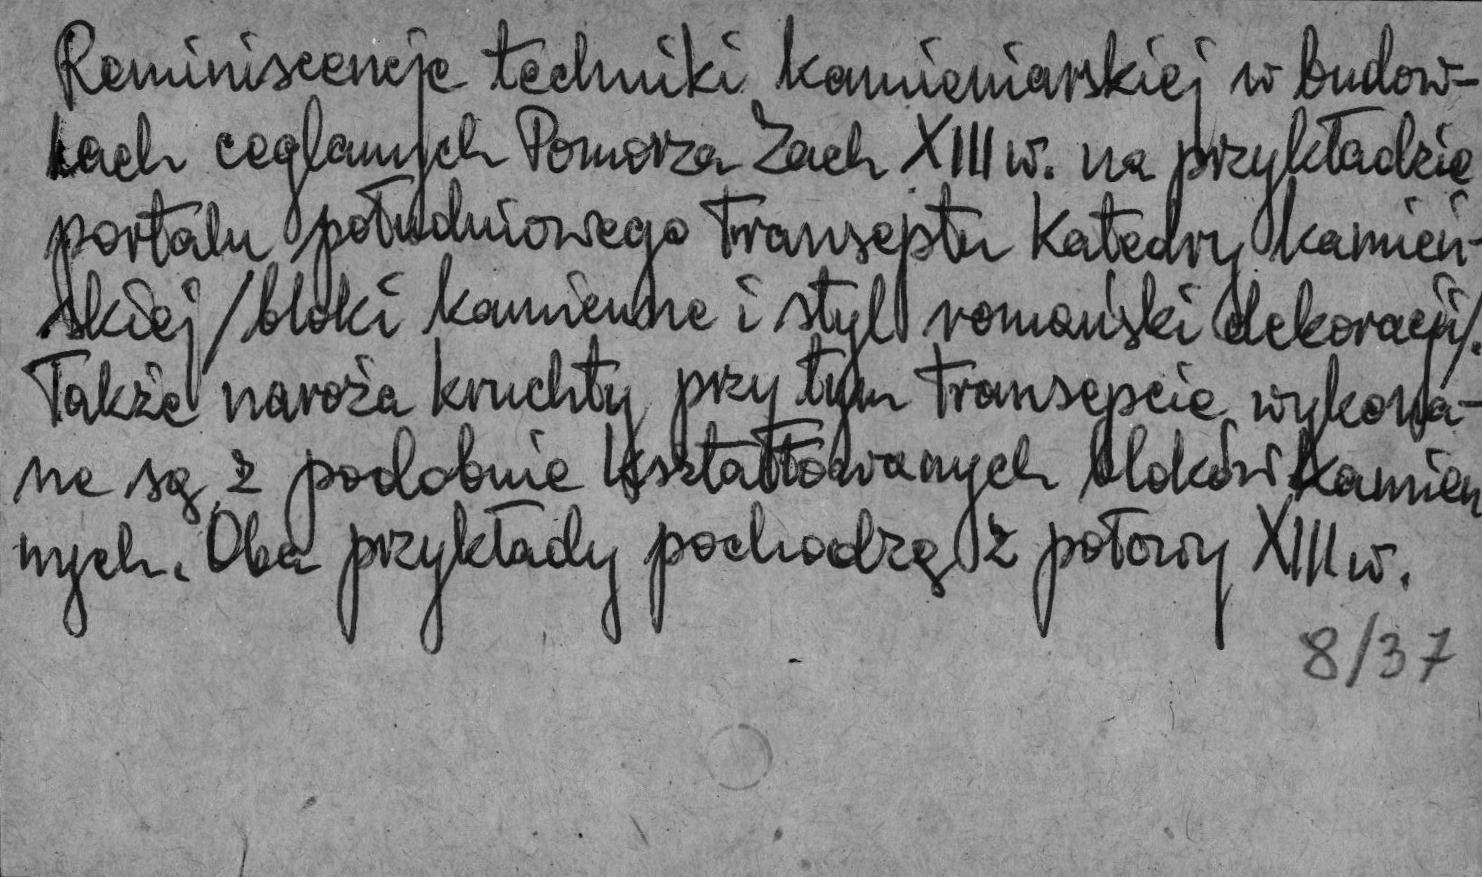 Reminiscencje techniki kamieniarskiej w budow-
lach ceglanych Pomorza Zach XIII w. na przykładzie
portalu południowego Transeptu Katedry kamień-
skiej /bloki kamienne i styl romański dekoracji/.
Także naroża kruchty przy tym Transepcie wykona-
ne są z podobnie kształtowanych bloków kamien
nych. Oba przykłady pochodzą z połowy XIII w.
8/37